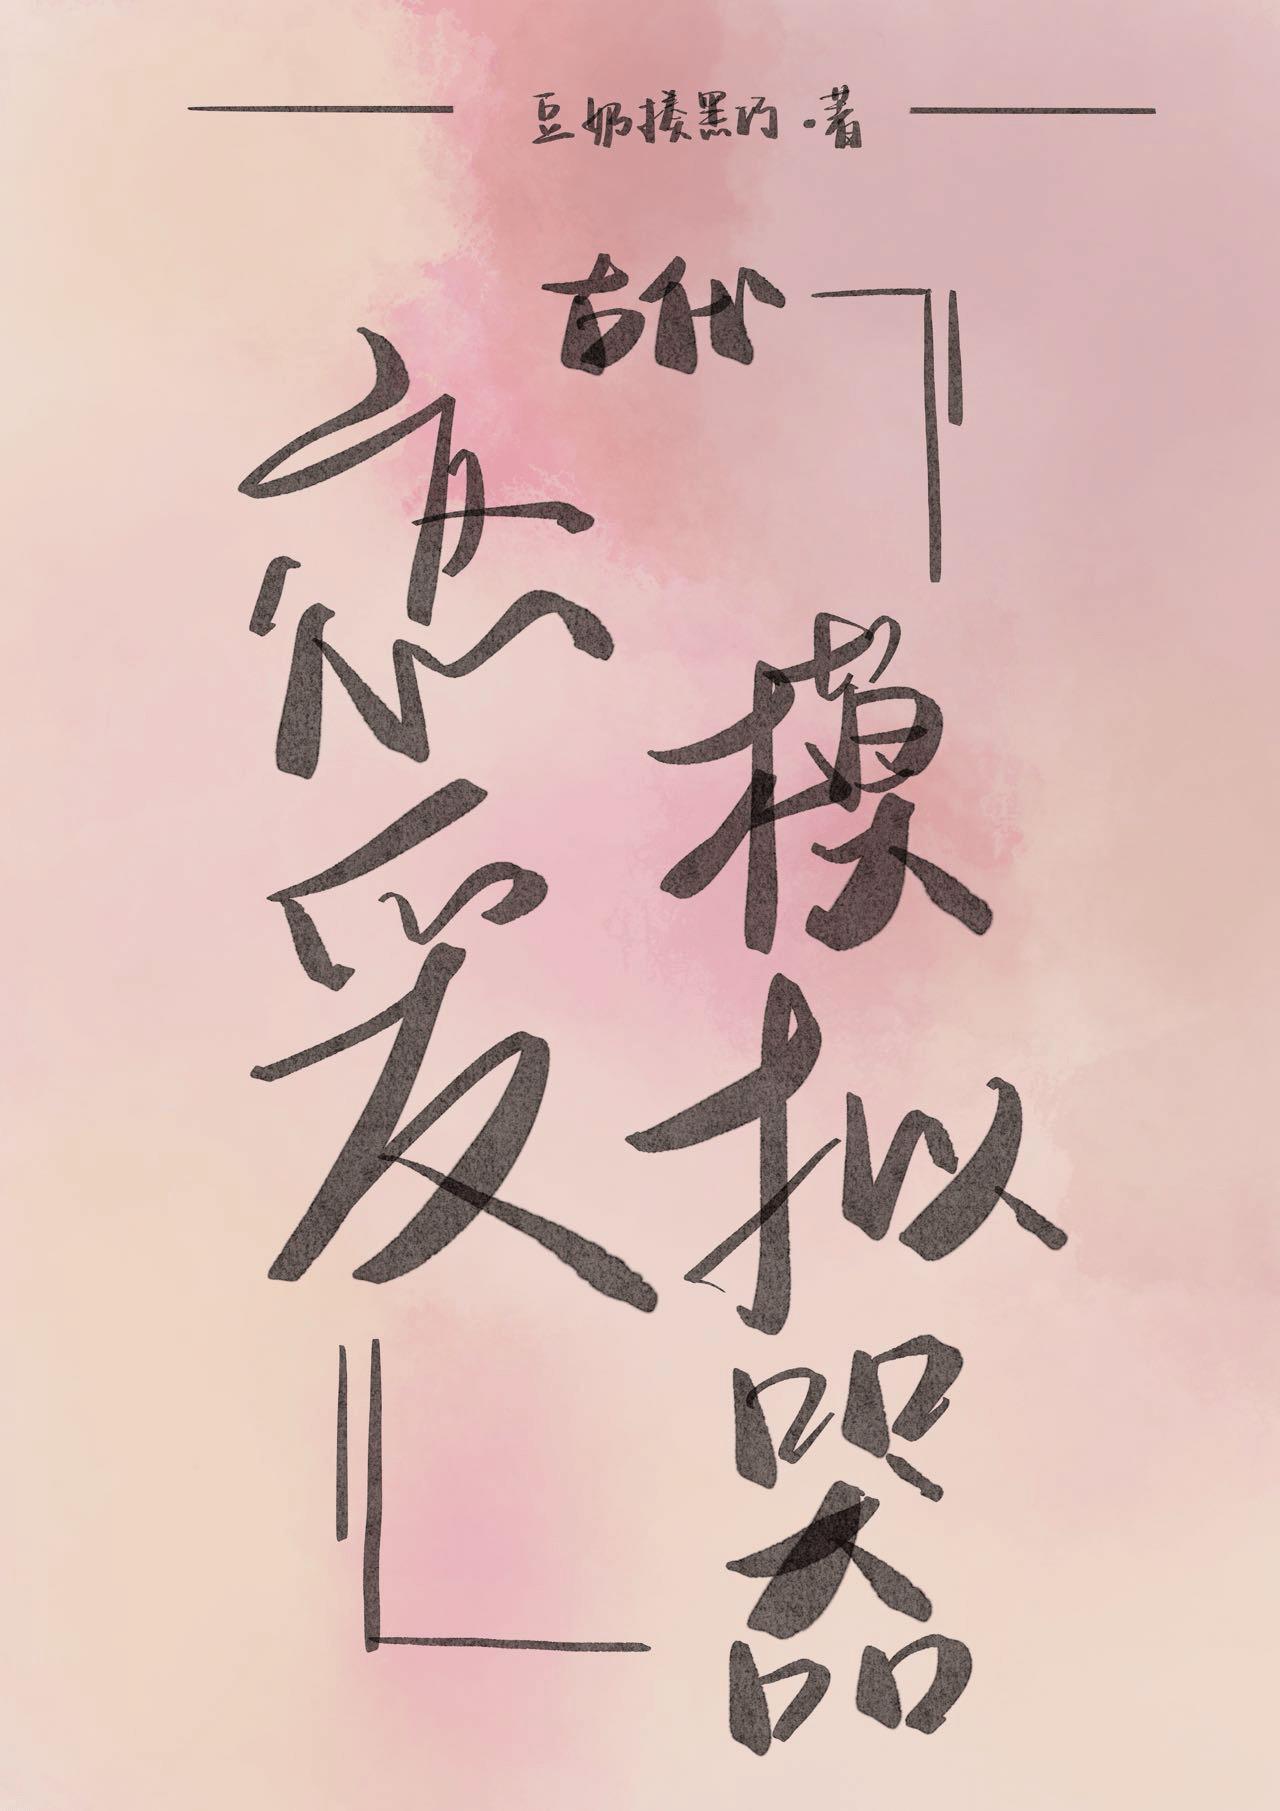 豆奶揍黑巧·著
古代
恋爱
模拟器